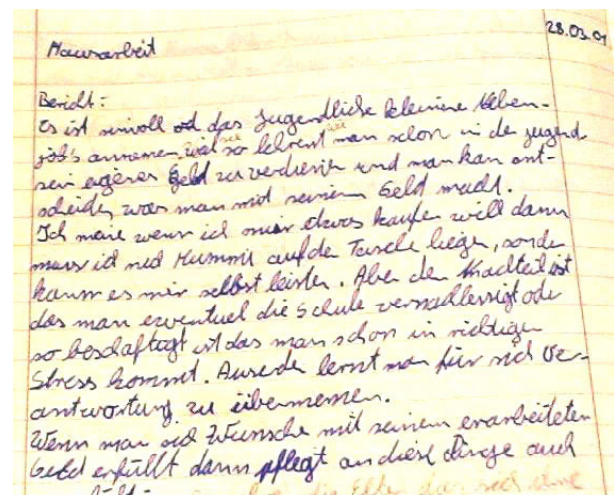 28.03.01
Hausarbeit
Bericht:
Es ist sinvoll od das Jugendliche kleinere Neben-
job's annemen, weil so lehrent man schon in der jugend
sein eigenes Geld zu verdienen und man kan ent-
scheiden was man mid seinem Geld macht.
Ich meine wenn ich mir etwas kaufen will dann
muss ich nid Mummi auf de Tasche liegen, sonder
kann es mir selbst leisten. Aber der Nachteil ist
das man eventuel die Schule vernachlessigt oder
so beschaftogt ist das man schon in richtigen
Stress kommt. Auserde lernt man für sich Ver-
antwortung zu übernemen.
Wenn man sich Wünsche mit seinem erarbeiteten
Geld erfüllt dann pflegt an diese Dinge auch
die Elte das sich ihne